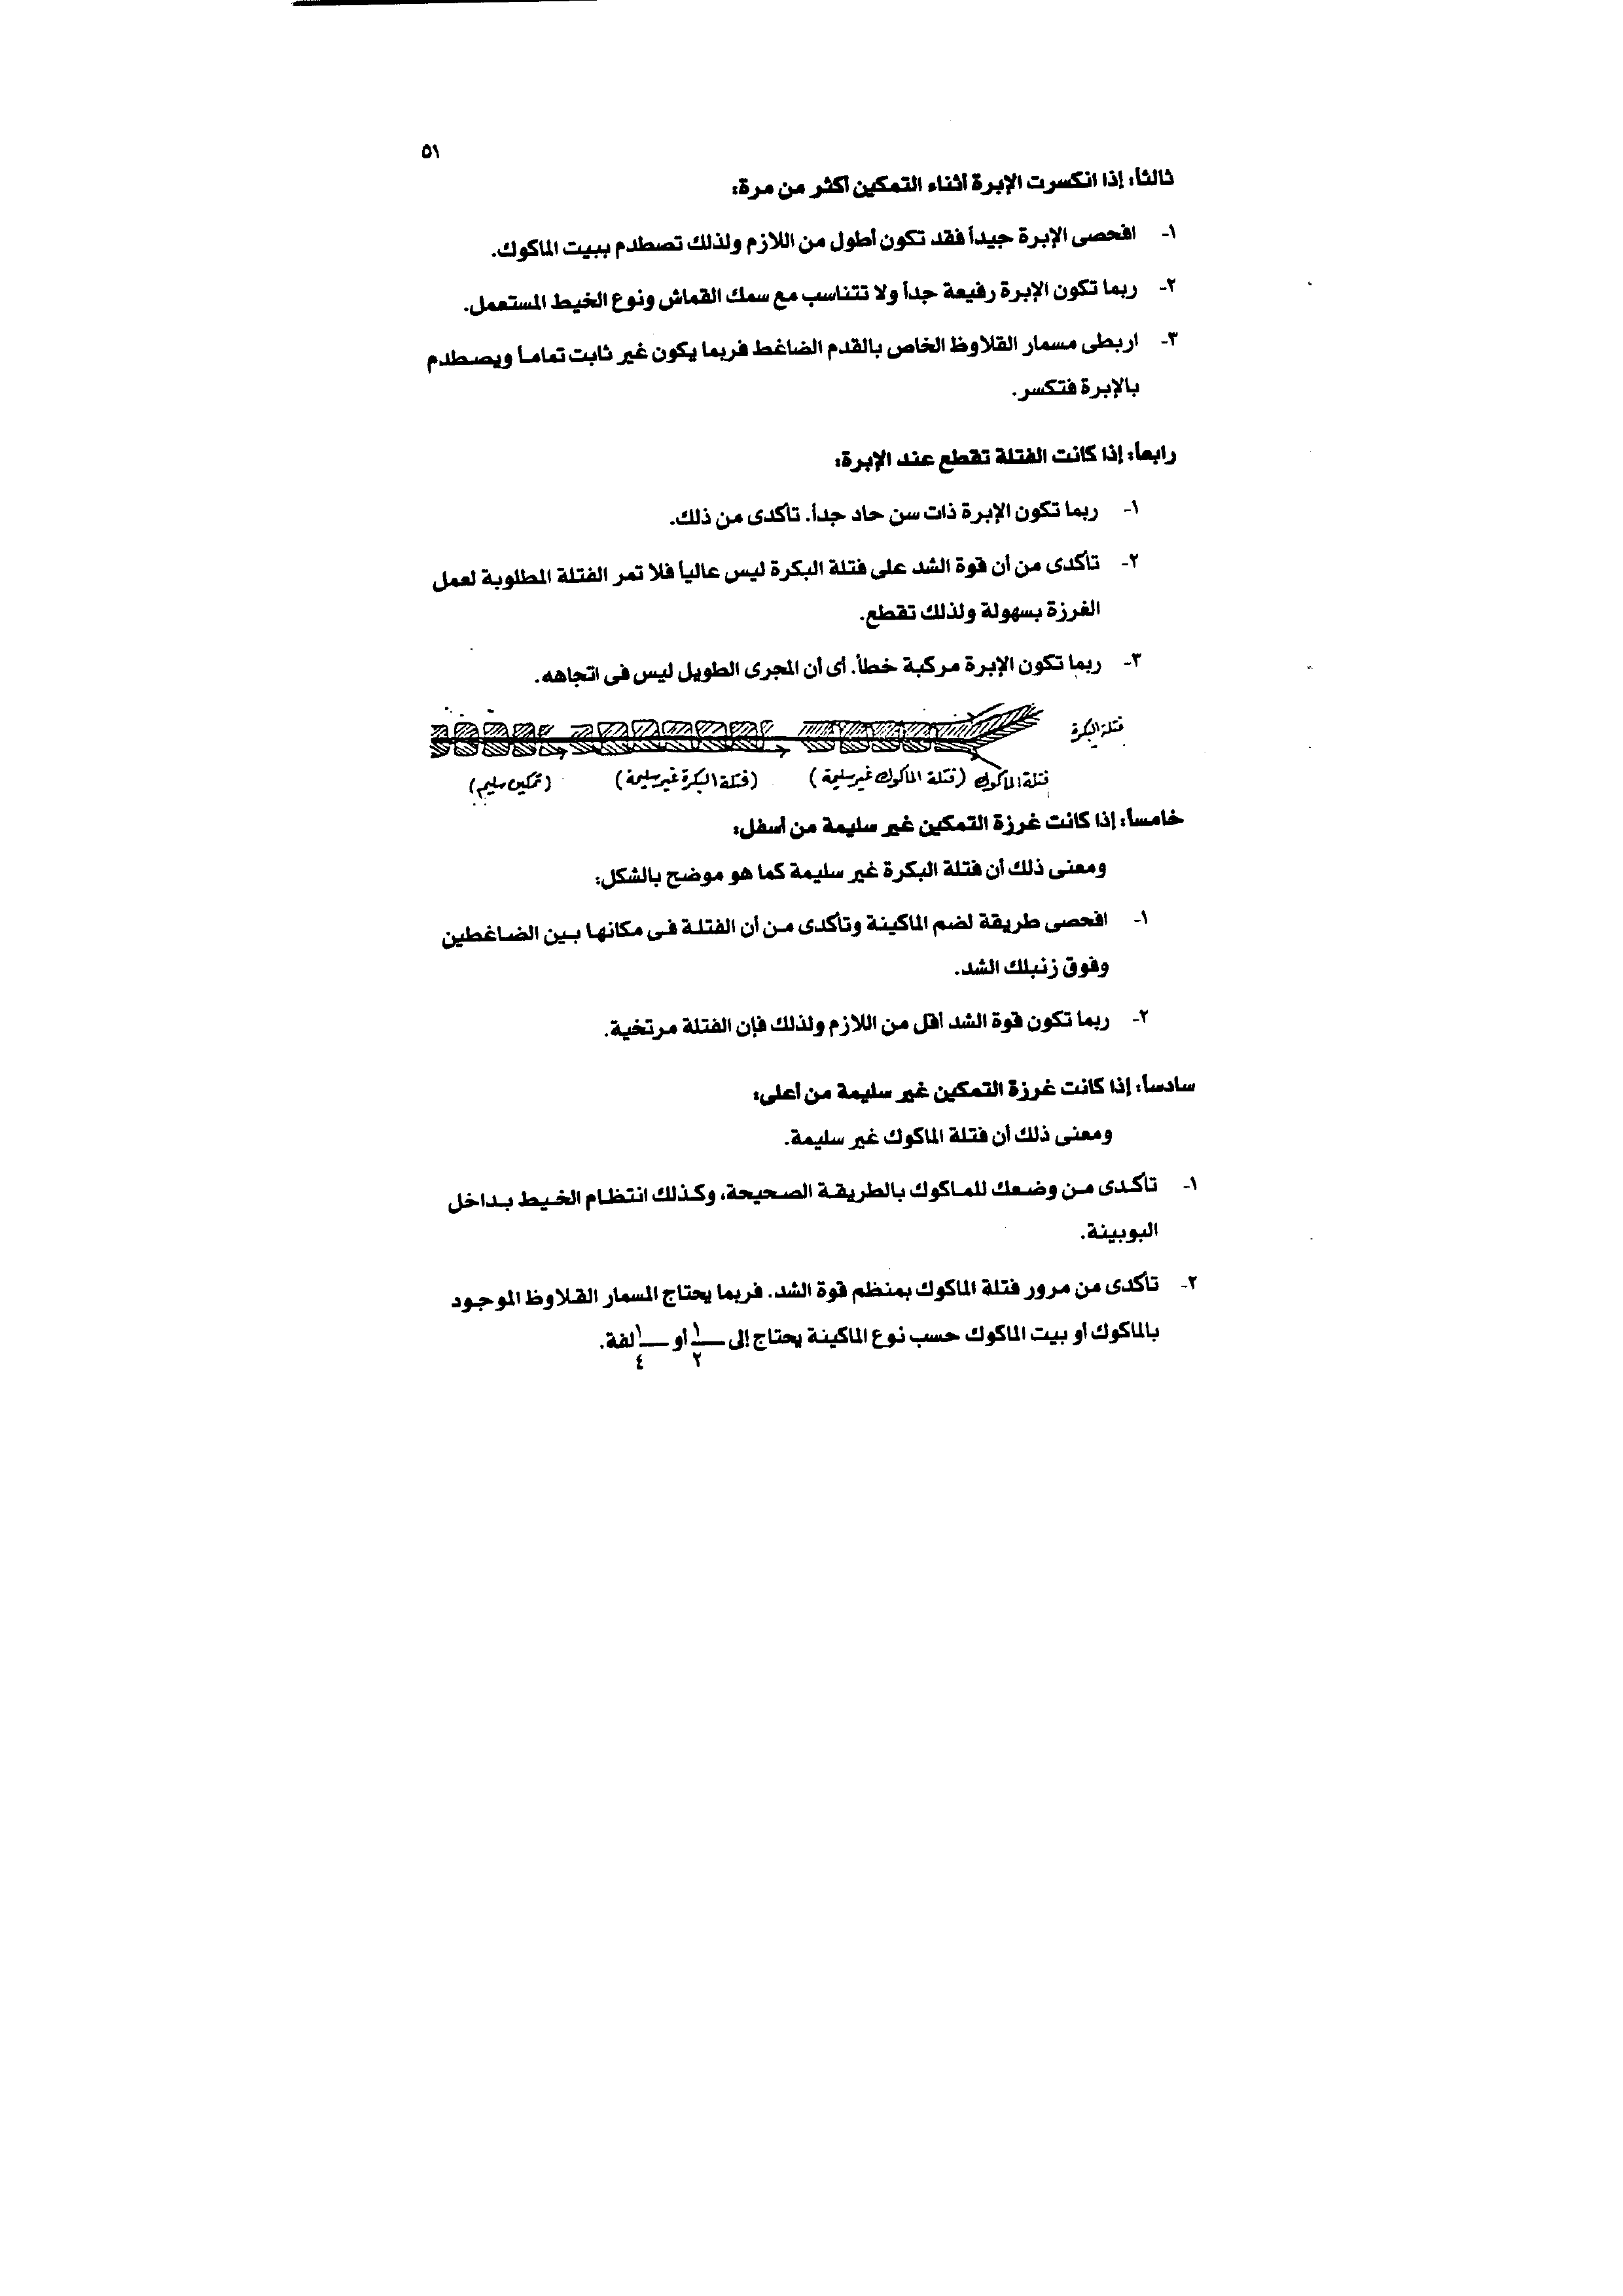 ٥١
ثالثاً: إذا انكسرت الإبرة أثناء التمكين أكثر من مرة:
١- افحصى الإبرة جيداً فقد تكون أطول من اللازم ولذلك تصطدم ببيت الماكوك.
٢- ربما تكون الإبرة رفيعة جداً ولا تتناسب مع سمك القماش ونوع الخيط المستعمل.
٣- اربطى مسمار القلاوظ الخاص بالقدم الضاغط فربما يكون غير ثابت تماماً ويصطدم
بالإبرة فتكسر.
رابعاً: إذا كانت الفتلة تقطع عند الإبرة:
١- ربما تكون الإبرة ذات سن حاد جداً. تأكدى من ذلك.
٢- تأكدى من أن قوة الشد على فتلة البكرة ليس عالياً فلا تمر الفتلة المطلوبة لعمل
الغرزة بسهولة ولذلك تقطع.
٣- ربما تكون الإبرة مركبة خطأ. أى أن المجرى الطويل ليس فى اتجاهه.
فتلة البكرة
فتلة الماكوك (فتلة الماكوك غير سليمة) (فتلة البكرة غير سليمة) (تمكين سليم)
خامساً: إذا كانت غرزة التمكين غير سليمة من أسفل:
ومعنى ذلك أن فتلة البكرة غير سليمة كما هو موضح بالشكل:
١- افحصى طريقة لضم الماكينة وتأكدى من أن الفتلة فى مكانها بين الضاغطين
وفوق زنبلك الشد.
٢- ربما تكون قوة الشد أقل من اللازم ولذلك فإن الفتلة مرتخية.
سادساً: إذا كانت غرزة التمكين غير سليمة من أعلى:
ومعنى ذلك أن فتلة الماكوك غير سليمة.
١- تأكدى من وضعك للماكوك بالطريقة الصحيحة، وكذلك انتظام الخيط بداخل
البوبينة.
٢- تأكدى من مرور فتلة الماكوك بمنظم قوة الشد. فربما يحتاج المسمار القلاوظ الموجود
بالماكوك أو بيت الماكوك حسب نوع الماكينة يحتاج إلى ١/٢ أو ١/٤ لفة.